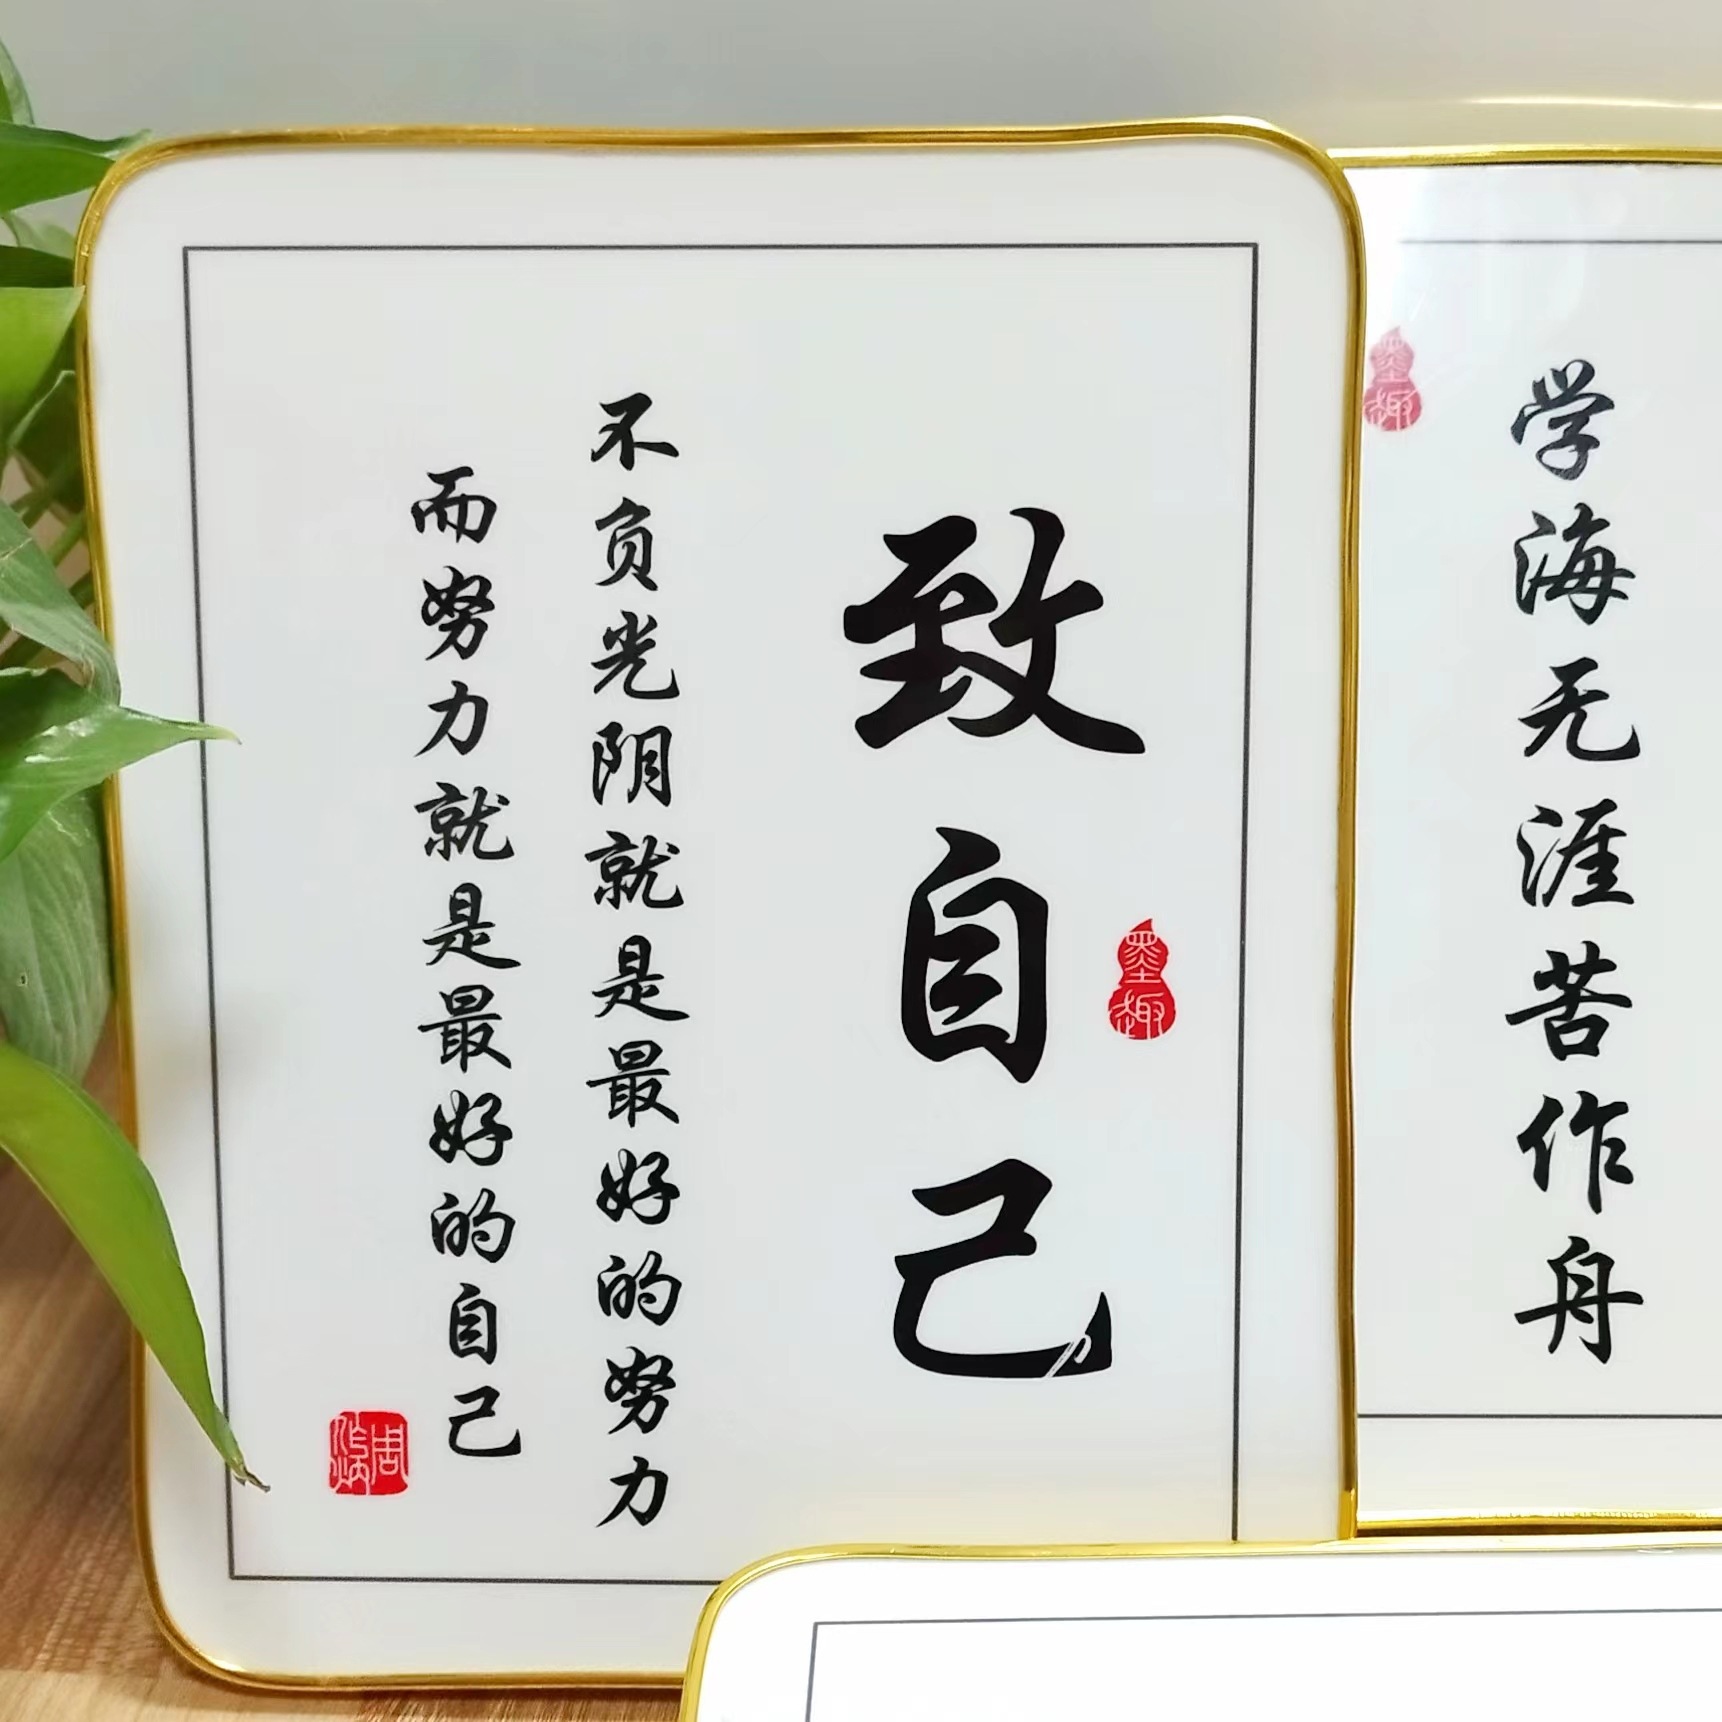 致自己
不负光阴就是最好的努力
而努力就是最好的自己
墨趣
学海无涯苦作舟
墨趣